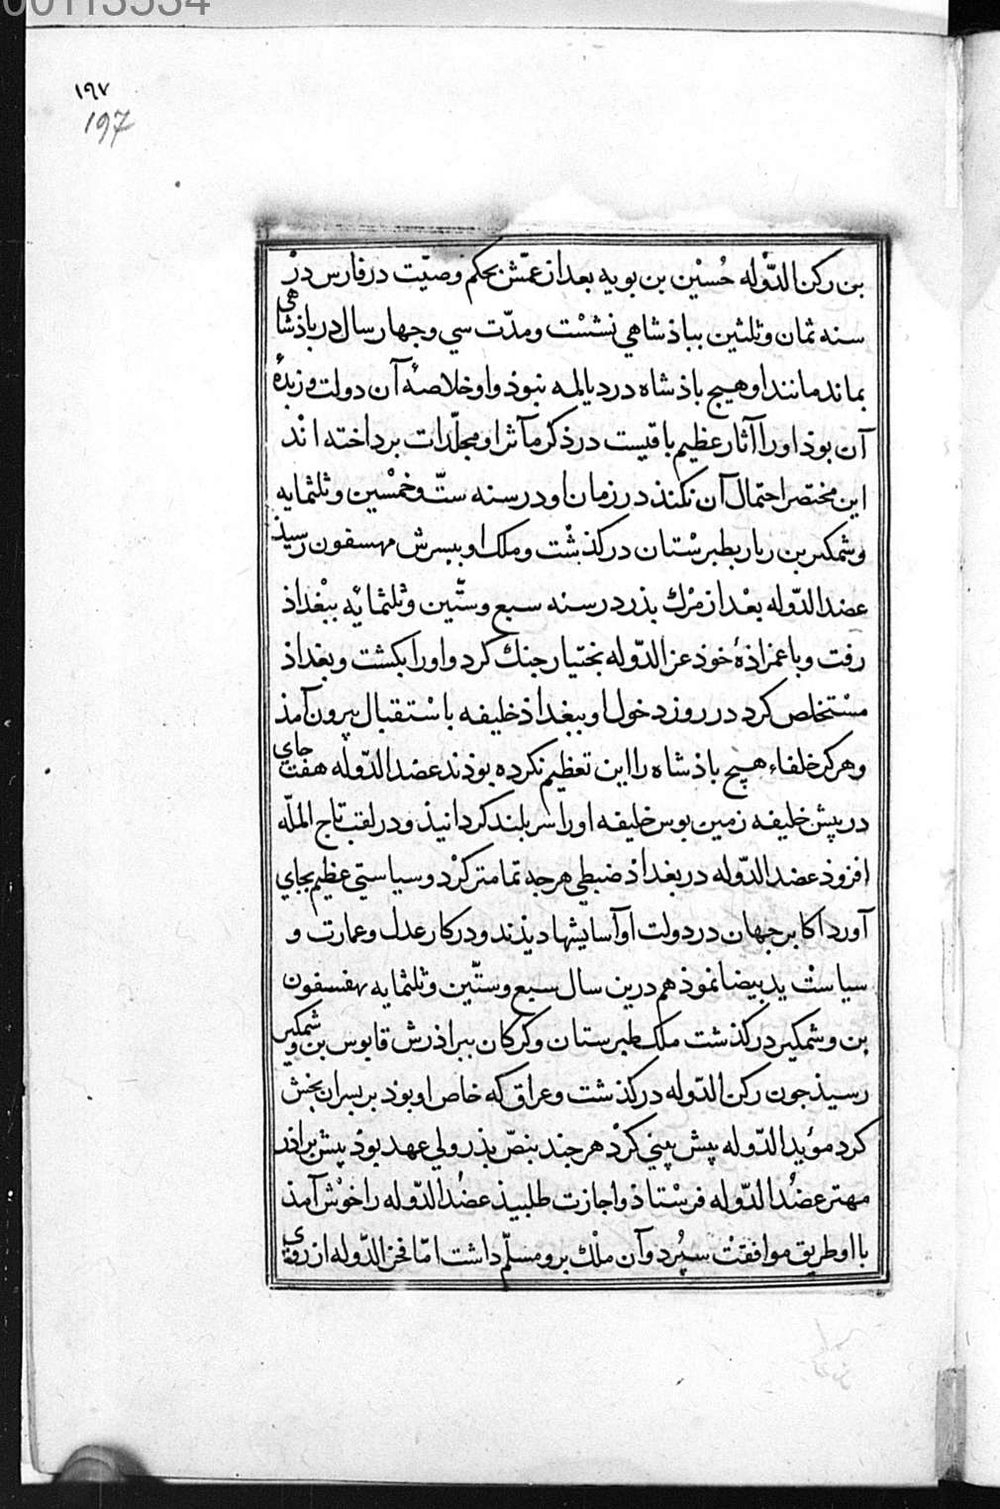 00113534
١٩٧
197
بن رکن الدّوْله حُسیْن بن بویه بعد از عمّش بحکم وصیّت در فارس درْ
سنه ثمان وثلثین بباذشاهي نشسْت ومدّت سي وجهار سال در باذشاهی
بماند مانند او هیج باذشاه در دیالمه نبوذ واو خلاصهٔ آن دولت و زبدهٔ
آن بوذ اورا آثار عظیم باقیست در ذکر مآثر او مجلّدات برداخته اند
این مختصر احتمال آن نکند در زمان او در سنه ستّ وخمْسین وثلثمایه
وشمکیر بن زیار بطبرسْتان درکذشْت وملک او ببسرش مهسفون رسیذ
عضد الدّوله بعْد از مرْك بذر در سنه سبع وستّین وثلثمایه ببغْداذ
رفت وبا عمزاذهٔ خوذ عز الدّوله بختیار جنك کرد واورا بکشت وبغداذ
مسْتخلص کرد در روز دخول او ببغداذ خلیفه باسْتقبال بیرون آمذ
وهرکز خلفاء هیچ باذشاه را این تعظیم نکرده بوذند عضد الدّوله هفت جاي
در پیش خلیفه زمین بوس خلیفه اورا سر بلند کردانیذ و در لقب تاج الملّه
افزوذ عضد الدّوله در بغداذ ضبطي هرجه تمامتر کرْد وسیاستي عظیم بجاي
آورد اکابر جهان در دولت او آسایشها دیذند و در کار عدل وعمارت و
سیاستْ ید بیضا نموذ هم درین سال سبع وستّین وثلثمایه بهفسفون
بن وشمکیر درکذشت ملك طبرستان وکرکان ببراذرش قابوس بن وشمکیر
رسیذ جون رکن الدّوله درکذشت وعراق که خاص او بوذ بر بسران بخش
کرد مویّد الدّوله پیش بیني کرْد هرجند بنصّ بذر ولي عهد بوذ پیش براذر
مهتر عضُد الدّوله فرسْتاذ واجازت طلبیذ عضُد الدّوله را خوْش آمذ
با او طریق موافقتْ سپُرد وآن ملْك برو مسلّم داشت امّا فخر الدّوله از روی